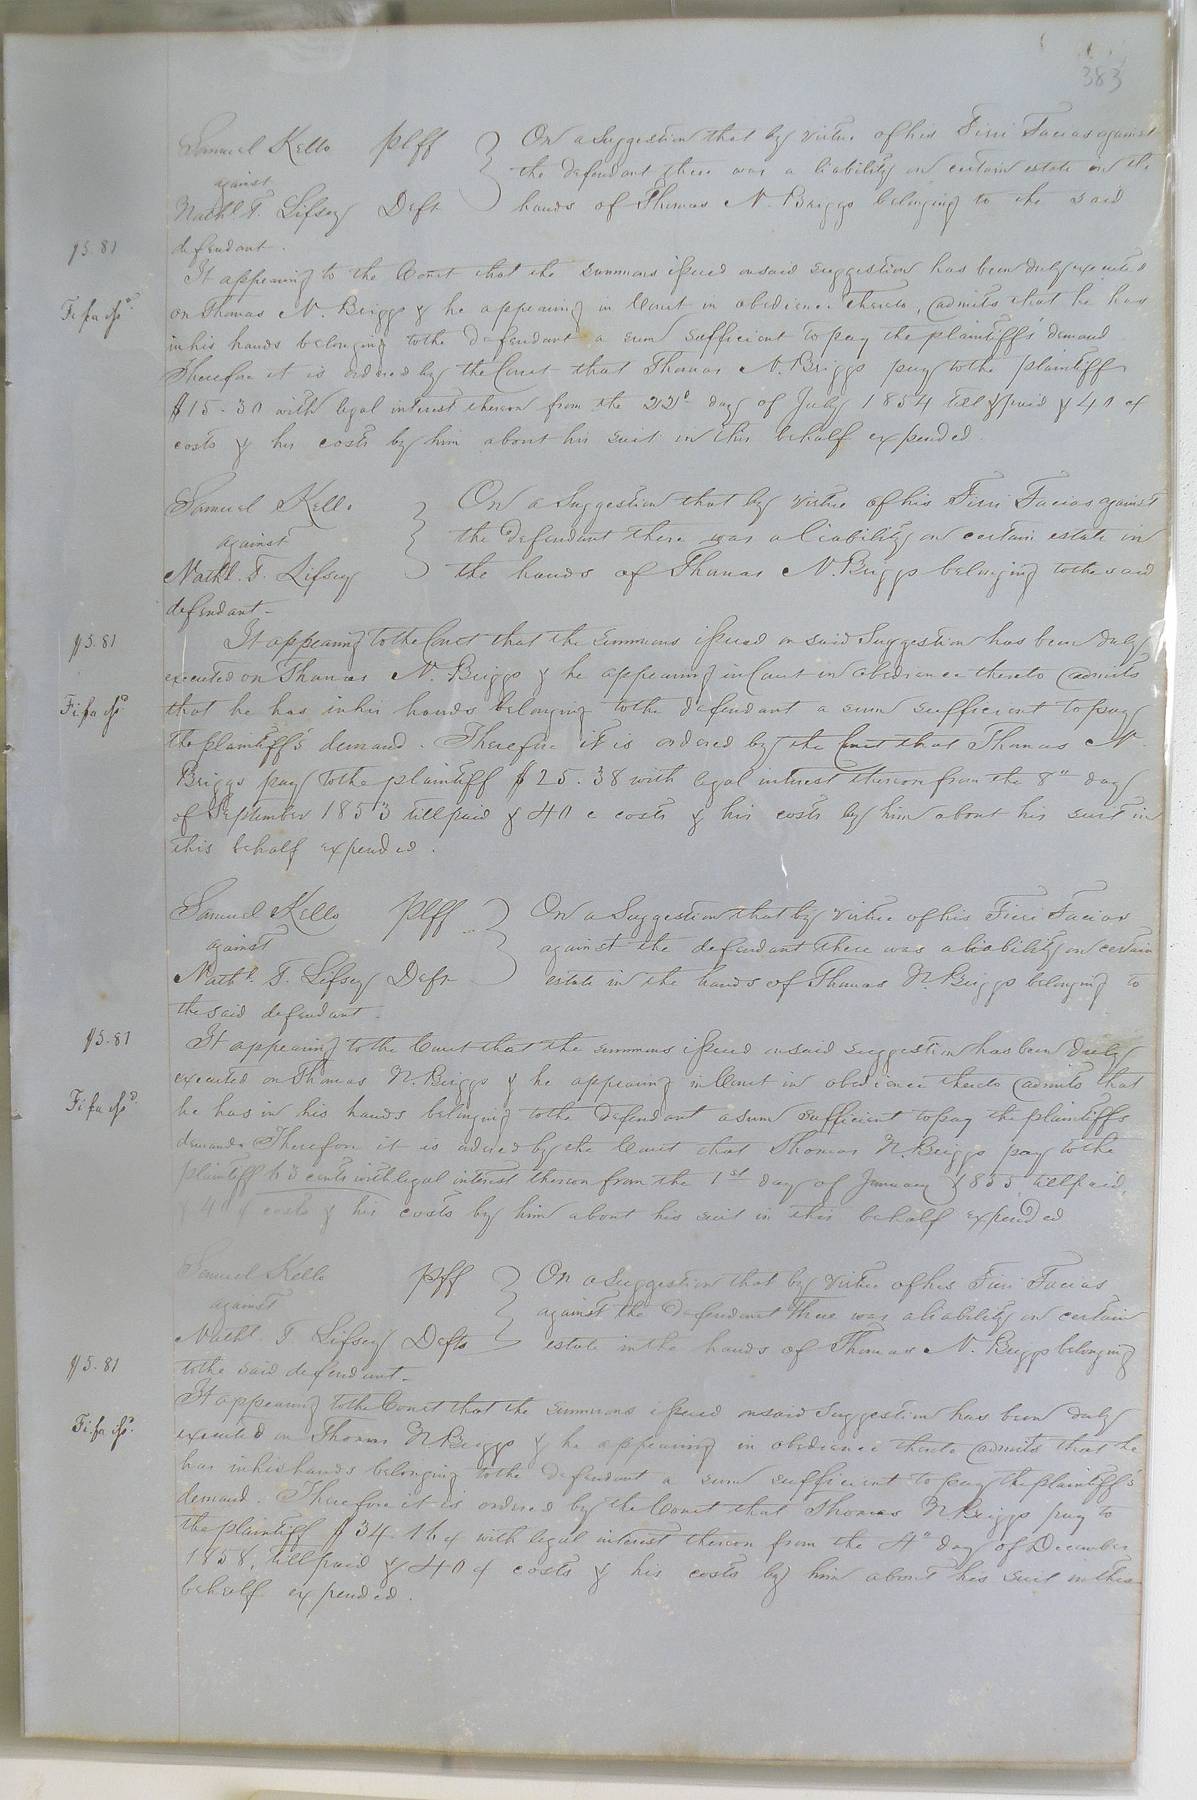 383
Samuel Kello Plff
against
Nathl. T. Lifsey Deft
On a Suggestion that by virtue of his Fieri Facias against
the defendant there was a liability on certain estate in the
hands of Thomas N. Briggs belonging to the said
defendant.
$5.81
It appearing to the Court that the summons issued on said suggestion has been duly executed
Fi fa
on Thomas N. Briggs & he appearing in Court in obedience thereto, admits that he has
in his hands belonging to the defendant a sum sufficient to pay the plaintiffs' demand
Therefore it is ordered by the Court that Thomas N. Briggs pay to the plaintiff
$15.30 with legal interest thereon from the 22d day of July 1854 till paid & 40 ¢
costs & his costs by him about his suit in this behalf expended
Samuel Kello
against
Nathl. T. Lifsey
On a Suggestion that by virtue of his Fieri Facias against
the defendant there was a liability on certain estate in
the hands of Thomas N. Briggs belonging to the said
defendant -
$5.81
It appearing to the Court that the summons issued on said Suggestion has been duly
executed on Thomas N. Briggs & he appearing in Court in obedience thereto admits
Fi fa
that he has in his hands belonging to the defendant a sum sufficient to pay
the plaintiff's demand. Therefore it is ordered by the Court that Thomas N.
Briggs pay to the plaintiff $25.38 with legal interest thereon from the 8th day
of September 1853 till paid & 40 c costs & his costs by him about his suit in
this behalf expended.
Samuel Kello Plff
against
Nathl. T. Lifsey Deft
On a Suggestion that by virtue of his Fieri Facias
against the defendant there was a liability on certain
estate in the hands of Thomas N. Briggs belonging to
the said defendant.
$5.81
It appearing to the Court that the summons issued on said suggestion has been duly
executed on Thomas N. Briggs & he appearing in Court in obedience thereto admits that
Fi fa
he has in his hands belonging to the defendant a sum sufficient to pay the plaintiffs
demand Therefore it is ordered by the Court that Thomas N. Briggs pay to the
plaintiff 63 cents with legal interest thereon from the 1st day of January 1855 till paid,
& 40 ¢ costs & his costs by him about his suit in this behalf expended
Samuel Kello Pff
against
Nathl T Lifsey Defts
On a Suggestion that by virtue of his Fieri Facias
against the defendant there was a liability on certain
estate in the hands of Thomas N. Briggs belonging
$5.81
to the said defendant -
It appearing to the Court that the summons issued on said Suggestion has been duly
Fi fa
executed on Thomas N Briggs & he appearing in obedience thereto admits that he
has in his hands belonging to the defendant a sum sufficient to pay the plaintiff's
demand. Therefore it is ordered by the Court that Thomas N Briggs pay to
the plaintiff $34.16 ¢ with legal interest thereon from the 4th day of December
1858, till paid & 40 ¢ costs & his costs by him about his suit in this
behalf expended.